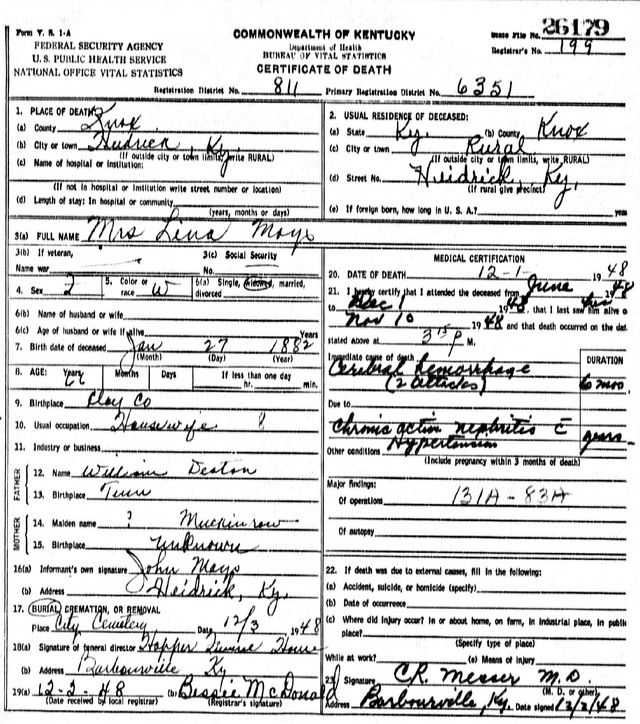 Form V. S. 1-A
FEDERAL SECURITY AGENCY
U. S. PUBLIC HEALTH SERVICE
NATIONAL OFFICE VITAL STATISTICS
COMMONWEALTH OF KENTUCKY
Department of Health
BUREAU OF VITAL STATISTICS
CERTIFICATE OF DEATH
State File No. 26179
Registrar's No. 199
Registration District No. 811 Primary Registration District No. 6351
1. PLACE OF DEATH
(a) County Knox
(b) City or town Heidrick, Ky
(If outside city or town limits, write RURAL)
(c) Name of hospital or Institution:
(If not in hospital or institution write street number or location)
(d) Length of stay: In hospital or community
(years, months or days)
2. USUAL RESIDENCE OF DECEASED:
(a) State Ky. (b) County Knox
(c) City or town Rural
(If outside city or town limits, write RURAL)
(d) Street No. Heidrick, Ky.
(If rural give precinct)
(e) If foreign born, how long in U. S. A.? years
3(a) FULL NAME Mrs Lina Mays
3(b) If veteran,
Name war
3(c) Social Security
No.
4. Sex 5. Color or race W 6(a) Single, widowed, married, divorced
6(b) Name of husband or wife
6(c) Age of husband or wife if alive Years
7. Birth date of deceased Jan 27 1882
(Month) (Day) (Year)
8. AGE: Years 66 Months Days If less than one day
hr. min.
9. Birthplace Clay Co
10. Usual occupation Housewife 8
11. Industry or business
FATHER
12. Name William Deaton
13. Birthplace Tenn
MOTHER
14. Maiden name ?
15. Birthplace unknown
16(a) Informant's own signature John Mays
(b) Address Heidrick, Ky.
17. BURIAL, CREMATION, OR REMOVAL
Place City Cemetery Date 12/3 1948
18(a) Signature of funeral director Hopper Funeral Home
(b) Address Barbourville Ky
19(a) 12-2-48 (b) Bessie McDonald
(Date received by local registrar) (Registrar's signature)
MEDICAL CERTIFICATION
20. DATE OF DEATH 12-1- 1948
21. I hereby certify that I attended the deceased from June 1948
to Dec 1 1948, that I last saw her alive on
Nov 10 1948 and that death occurred on the date
stated above at 3 15 P M.
Immediate cause of death DURATION
Cerebral hemorrhage
(2 attacks) 6 mos.
Due to
Chronic nephritis c years
Hypertension
Other conditions
(Include pregnancy within 3 months of death)
Major findings:
Of operations 131A - 83A
Of autopsy
22. If death was due to external causes, fill in the following:
(a) Accident, suicide, or homicide (specify)
(b) Date of occurrence
(c) Where did injury occur? In or about home, on farm, in industrial place, in public
place?
(Specify type of place)
While at work? (e) Means of Injury
23. Signature C.R. Messer M.D.
(M. D. or other)
Address Barbourville, Ky. Date signed 12/2/48